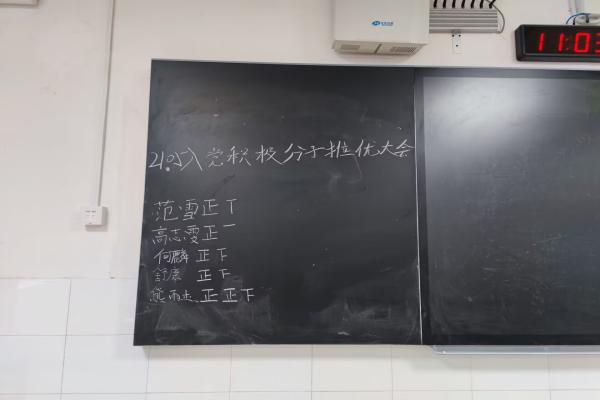 2105入党积极分子推优大会
范雪正丅
高志雯正一
何麟 正下
舒康 正下
熊雨 正正下
11:03